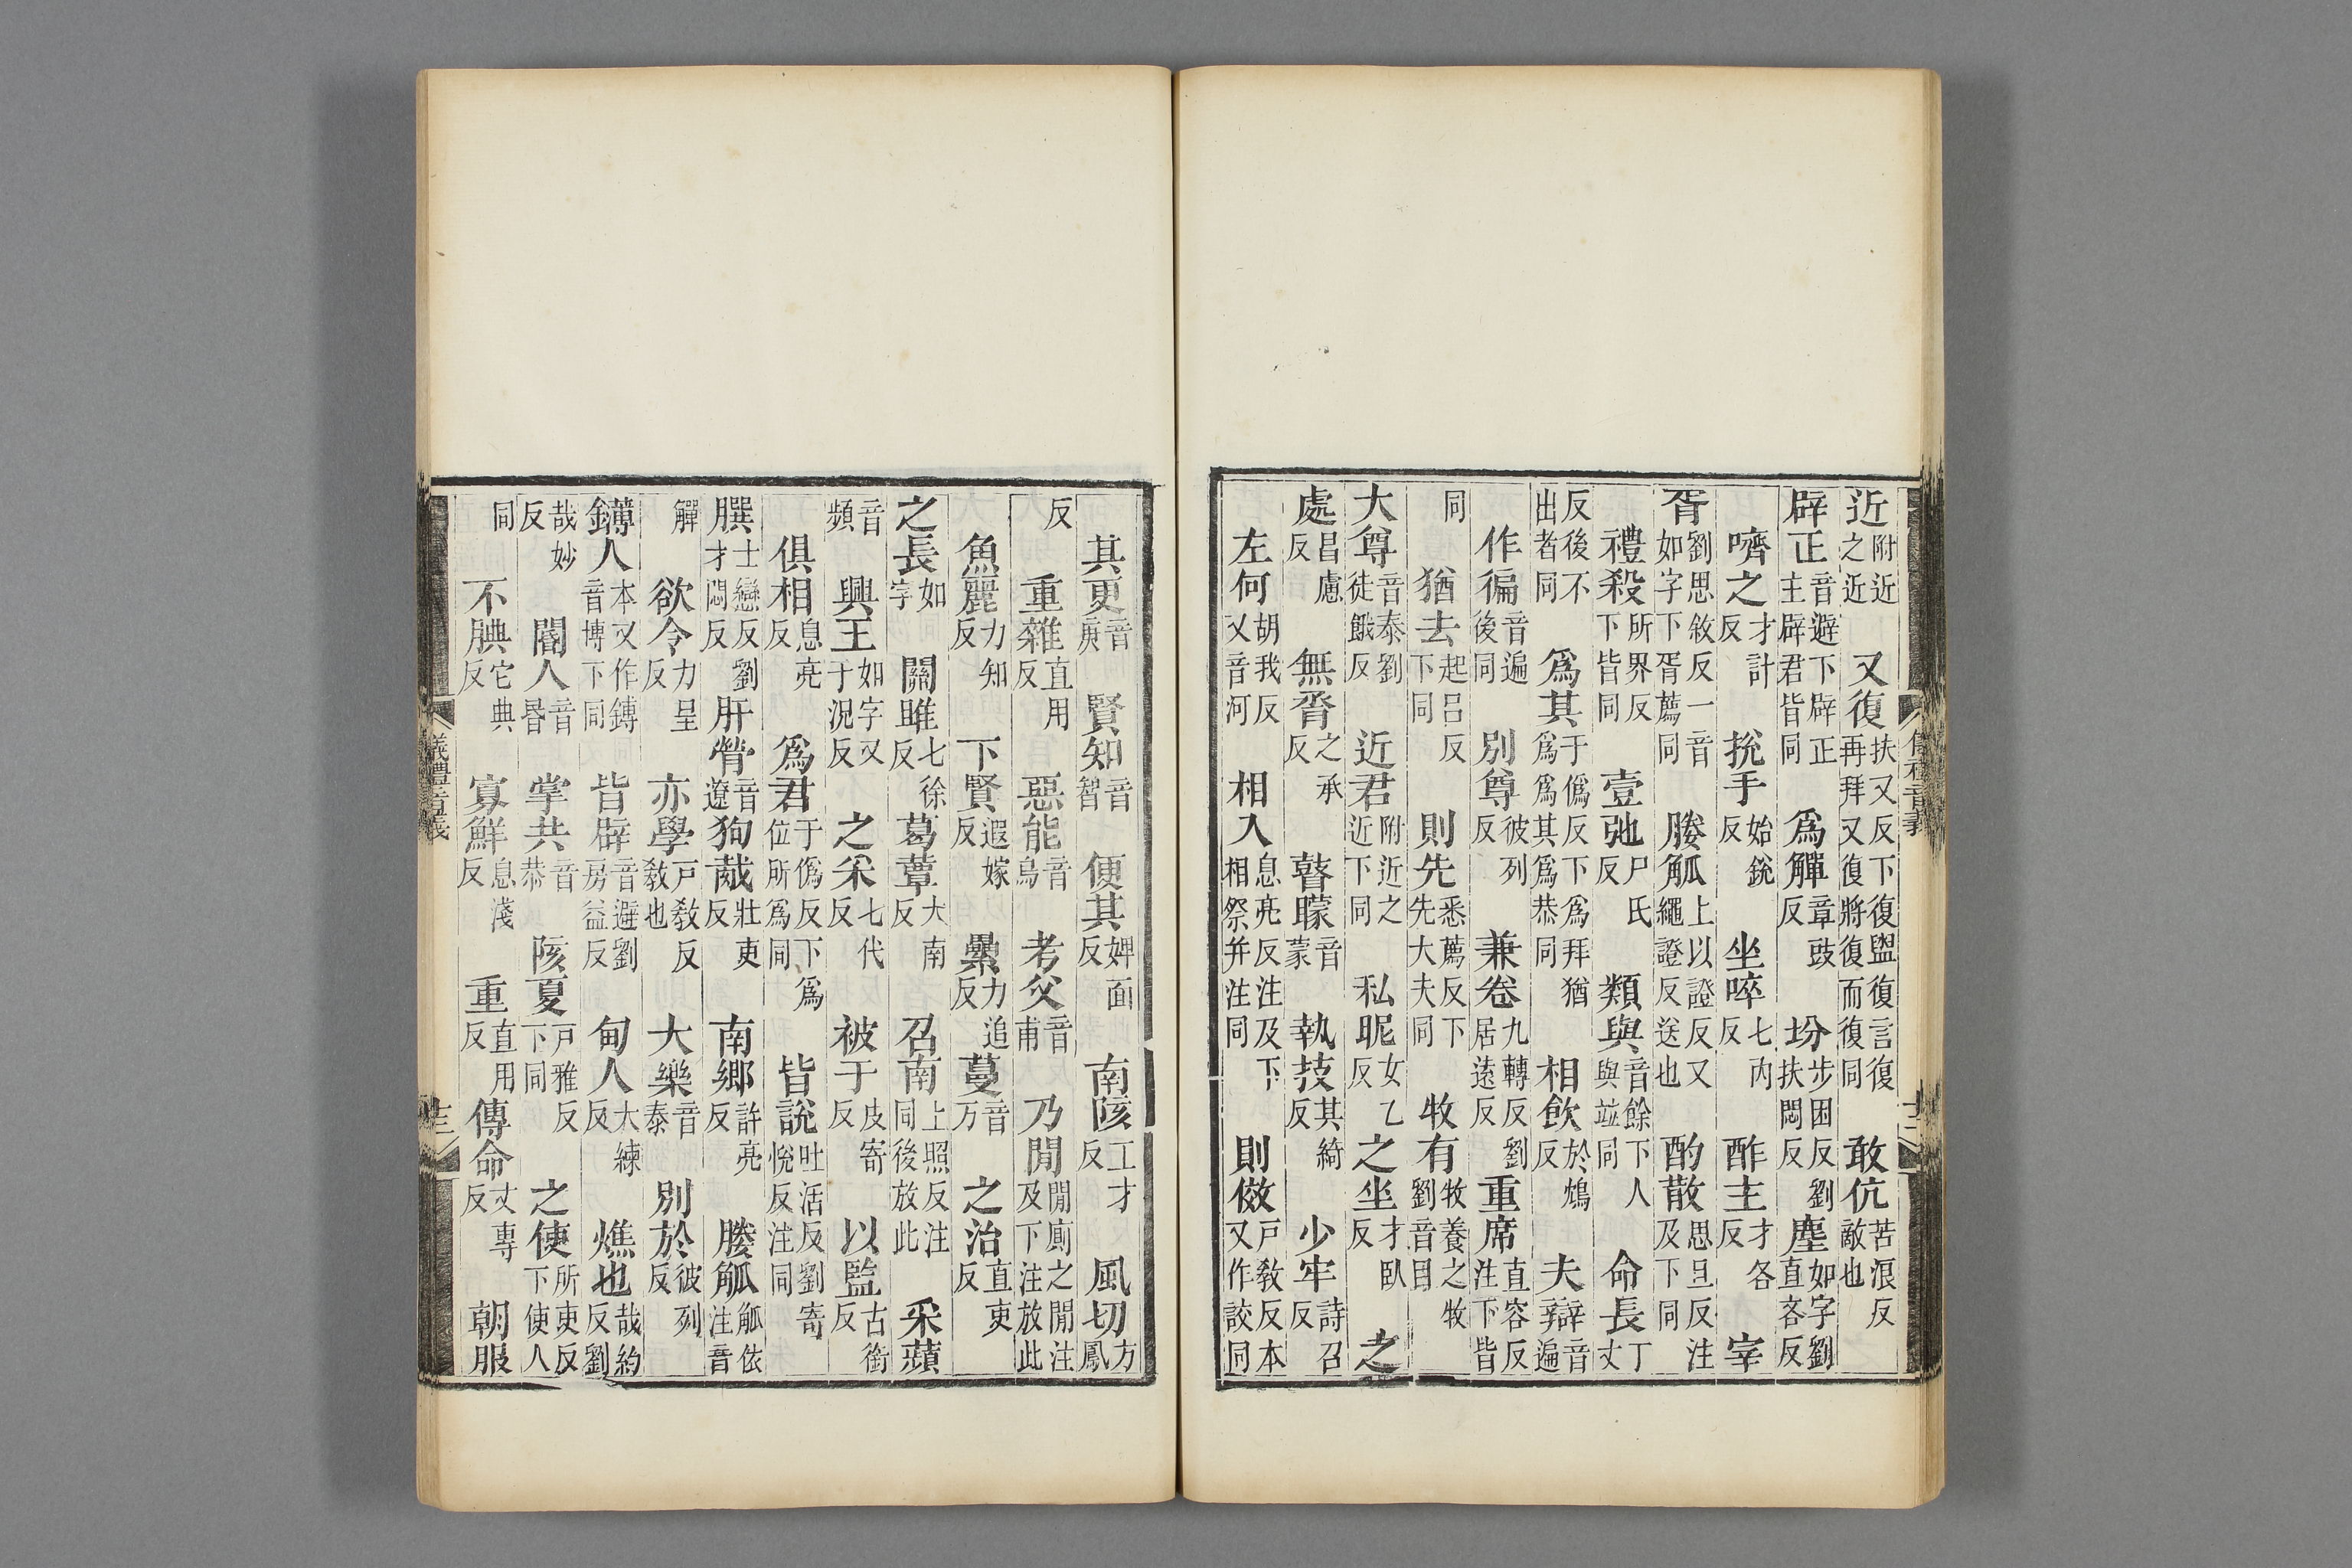 近附近之近　又復扶又反下復盥復言復再拜又復將復而復同　敢伉苦浪反敵也
辟正音避下辟正主辟君皆同　爲觶章豉反　坋步困反劉扶悶反　塵如字劉直吝反
嚌之才計反　挩手始銳反　坐啐七內反　酢主才各反　宰
胥劉思敘反一音如字下胥薦同　媵觚上以證反又繩證反送也　酌散思旦反注及下同
禮殺所界反下皆同　壹弛尸氏反　類與音餘下人與並同　命長丁丈
反後不出者同　爲其于僞反下爲拜猶爲爲其爲恭同　相飮於鴆反　夫辯音遍
作徧音遍後同　別尊彼列反　兼卷九轉反劉居遠反　重席直容反注下皆
同　猶去起呂反下同　則先悉薦反下先大夫同　牧有牧養之牧劉音目
大尊音泰劉徒餓反　近君附近之近下同　私昵女乙反　之坐才臥反　之
處昌慮反　無脀之承反　瞽矇音蒙　執技其綺反　少牢詩召反
左何胡我反又音河　相入息亮反注及下相祭并注同　則傚戶敎反本又作詨同
儀禮音義　十二
其更音庚　賢知音智　便其婢面反　南陔工才反　風切方鳳
反　重雜直用反　惡能音烏　考父音甫　乃閒閒廁之閒注及下注放此
魚麗力知反　下賢遐嫁反　纍力追反　蔓音万　之治直吏反
之長如字　關雎七徐反　葛蕈大南反　召南上照反注同後放此　采蘋
音頻　興王如字又于況反　之采七代反　被于皮寄反　以監古銜反
俱相息亮反　爲君于僞反下爲位所爲同　皆說吐活反劉寄悅反注同
𦠆士戀反劉才悶反　肝膋音遼　狗胾壯吏反　南鄉許亮反　媵觚觚依注音
觶　欲令力呈反　亦學戶敎反敎也　大樂音泰　別於彼列反
鑮人本又作鏄音博下同　皆辟音避劉房益反　甸人大練反　燋也哉約反劉
哉妙反　閽人音昬　掌共音恭　陔夏戶雅反下同　之使所吏反下使人
同　不腆它典反　寡鮮息淺反　重直用反　傳命丈專反　朝服
儀禮音義　十三